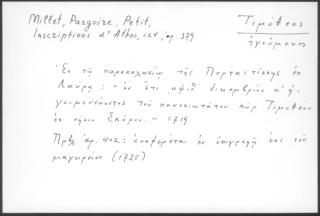 Millet, Pargoire, Petit,
Inscriptions d'Athos, 124, ἀρ. 379
Τιμόθεος
ἡγούμενος
Ἐν τῷ παρεκκλησίῳ τῆς Πορταϊτίσσης ἐν
Λαύρᾳ: "ἐν ἔτι αψιθ' δικεμβρίου α' ἡ-
γουμενέυοντος τοῦ πανοσιωτάτου κὺρ Τιμοθέου
ἐκ νήσου Σκύρου..." 1719
Πρβλ. ἀρ. 402: ἀναφέρεται ἐν ἐπιγραφῇ ἐπὶ τοῦ
μαγειρείου (1725)